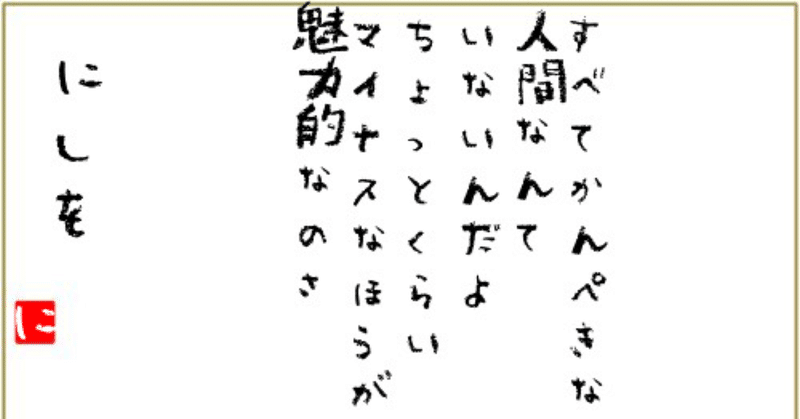 すべてかんぺきな
人間なんて
いないんだよ
ちょっとくらい
マイナスなほうが
魅力的なのさ
にしを
に